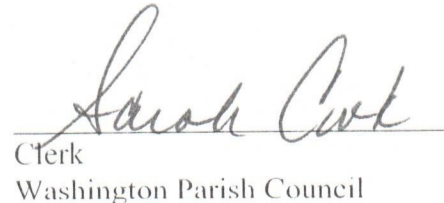 Sarah Cook
Clerk
Washington Parish Council